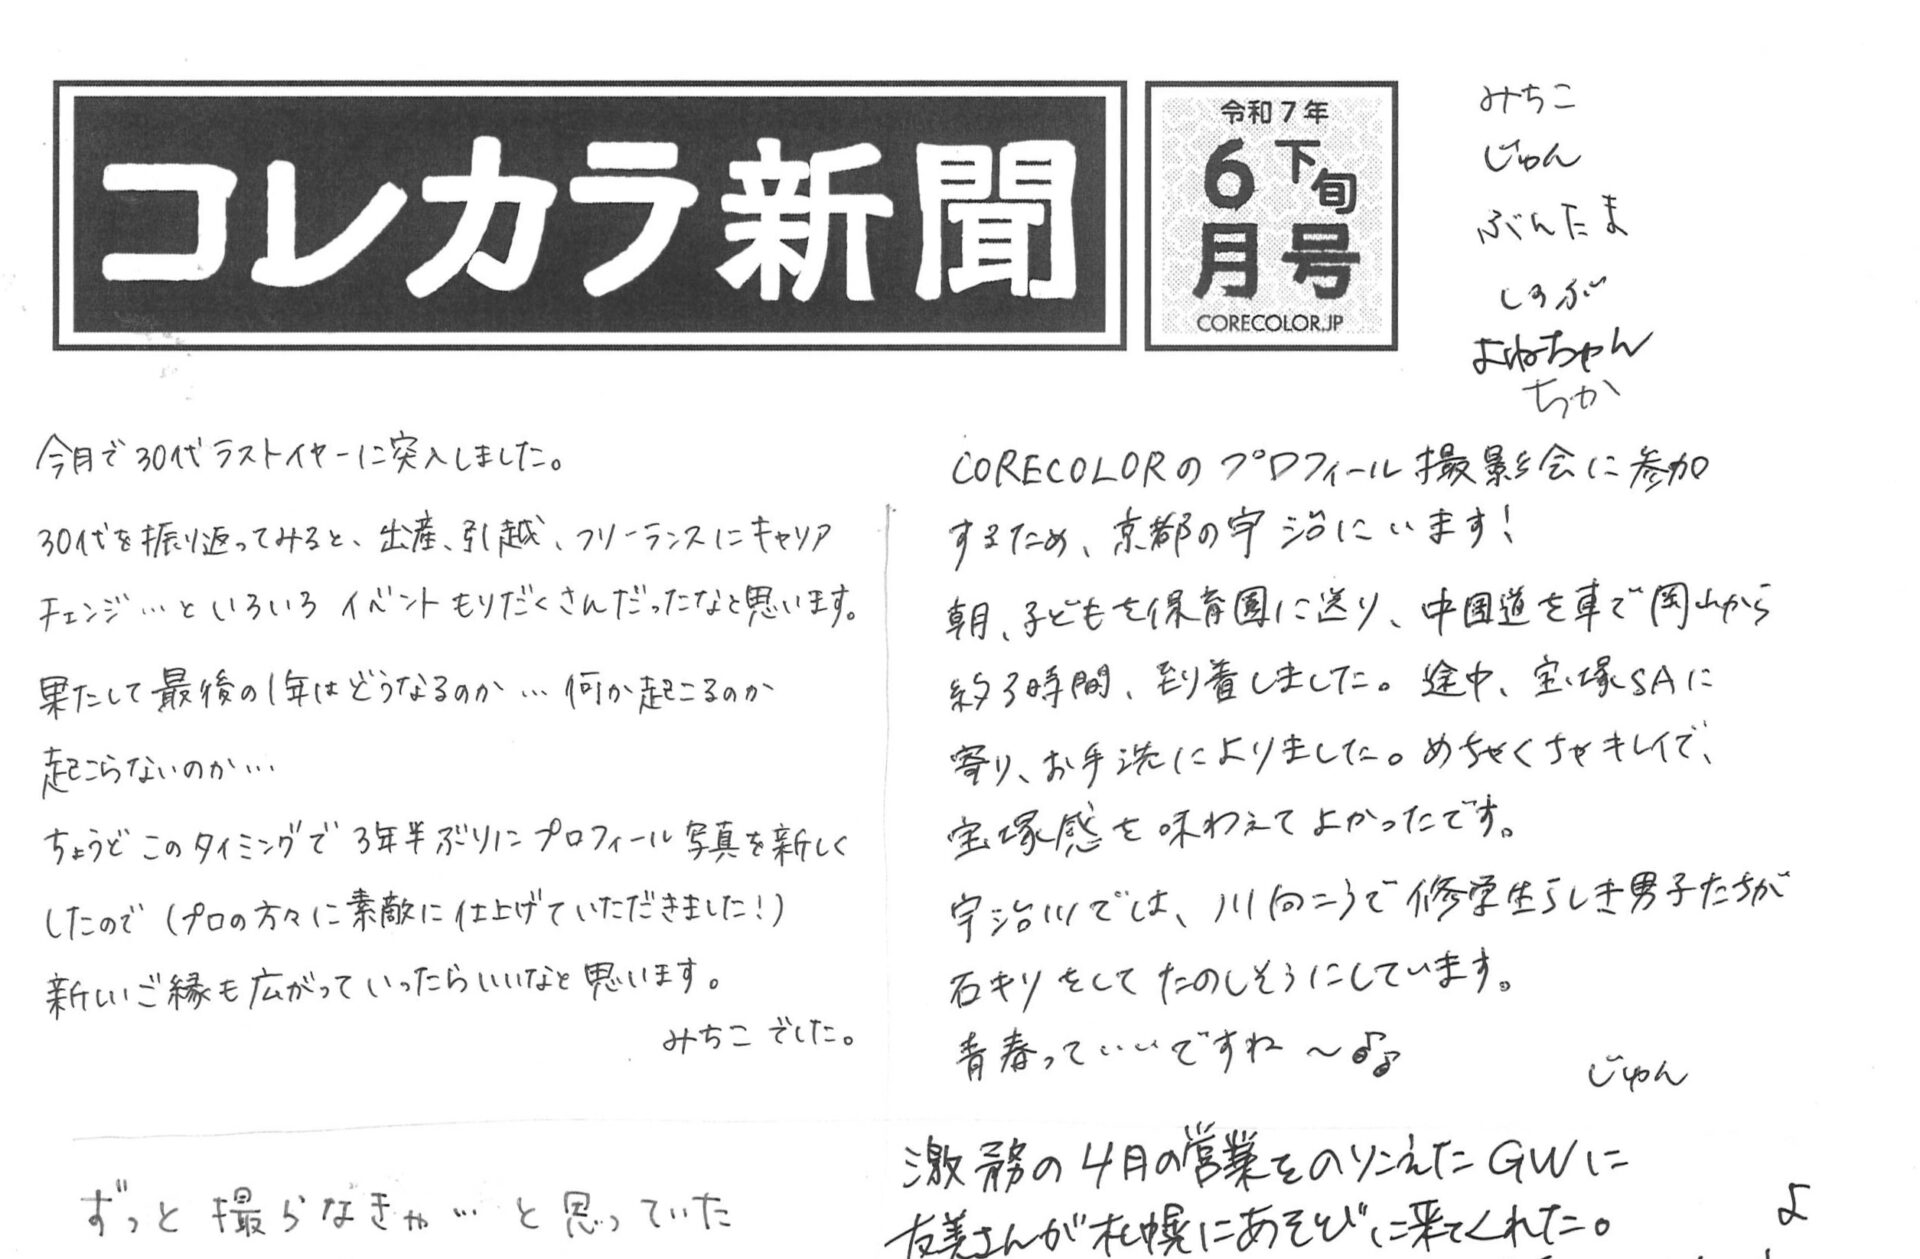 コレカラ新聞
令和7年
6月下旬号
CORECOLOR.JP
みちこ
じゅん
ぶんたま
しのぶ
よねちゃん
ちか
今月で30代ラストイヤーに突入しました。
30代を振り返ってみると、出産、引越、フリーランスにキャリア
チェンジ…といろいろイベントもりだくさんだったなと思います。
果たして最後の1年はどうなるのか…何か起こるのか
起こらないのか…
ちょうどこのタイミングで3年半ぶりにプロフィール写真を新しく
したので(プロの方々に素敵に仕上げていただきました!)
新しいご縁も広がっていったらいいなと思います。
みちこでした。
CORECOLORのプロフィール撮影会に参加
するため、京都の宇治にいます!
朝、子どもを保育園に送り、中国道を車で岡山から
約3時間、到着しました。途中、宝塚SAに
寄り、お手洗によりました。めちゃくちゃキレイで、
宝塚感を味わえてよかったです。
宇治川では、川向こうで修学生らしき男子たちが
石キリをしてたのしそうにしています。
青春っていいですね〜♪♪
じゅん
ずっと撮らなきゃ…と思っていた
激務の4月の営業をのりこえたGWに
友美さんが札幌にあそびに来てくれた。
♪